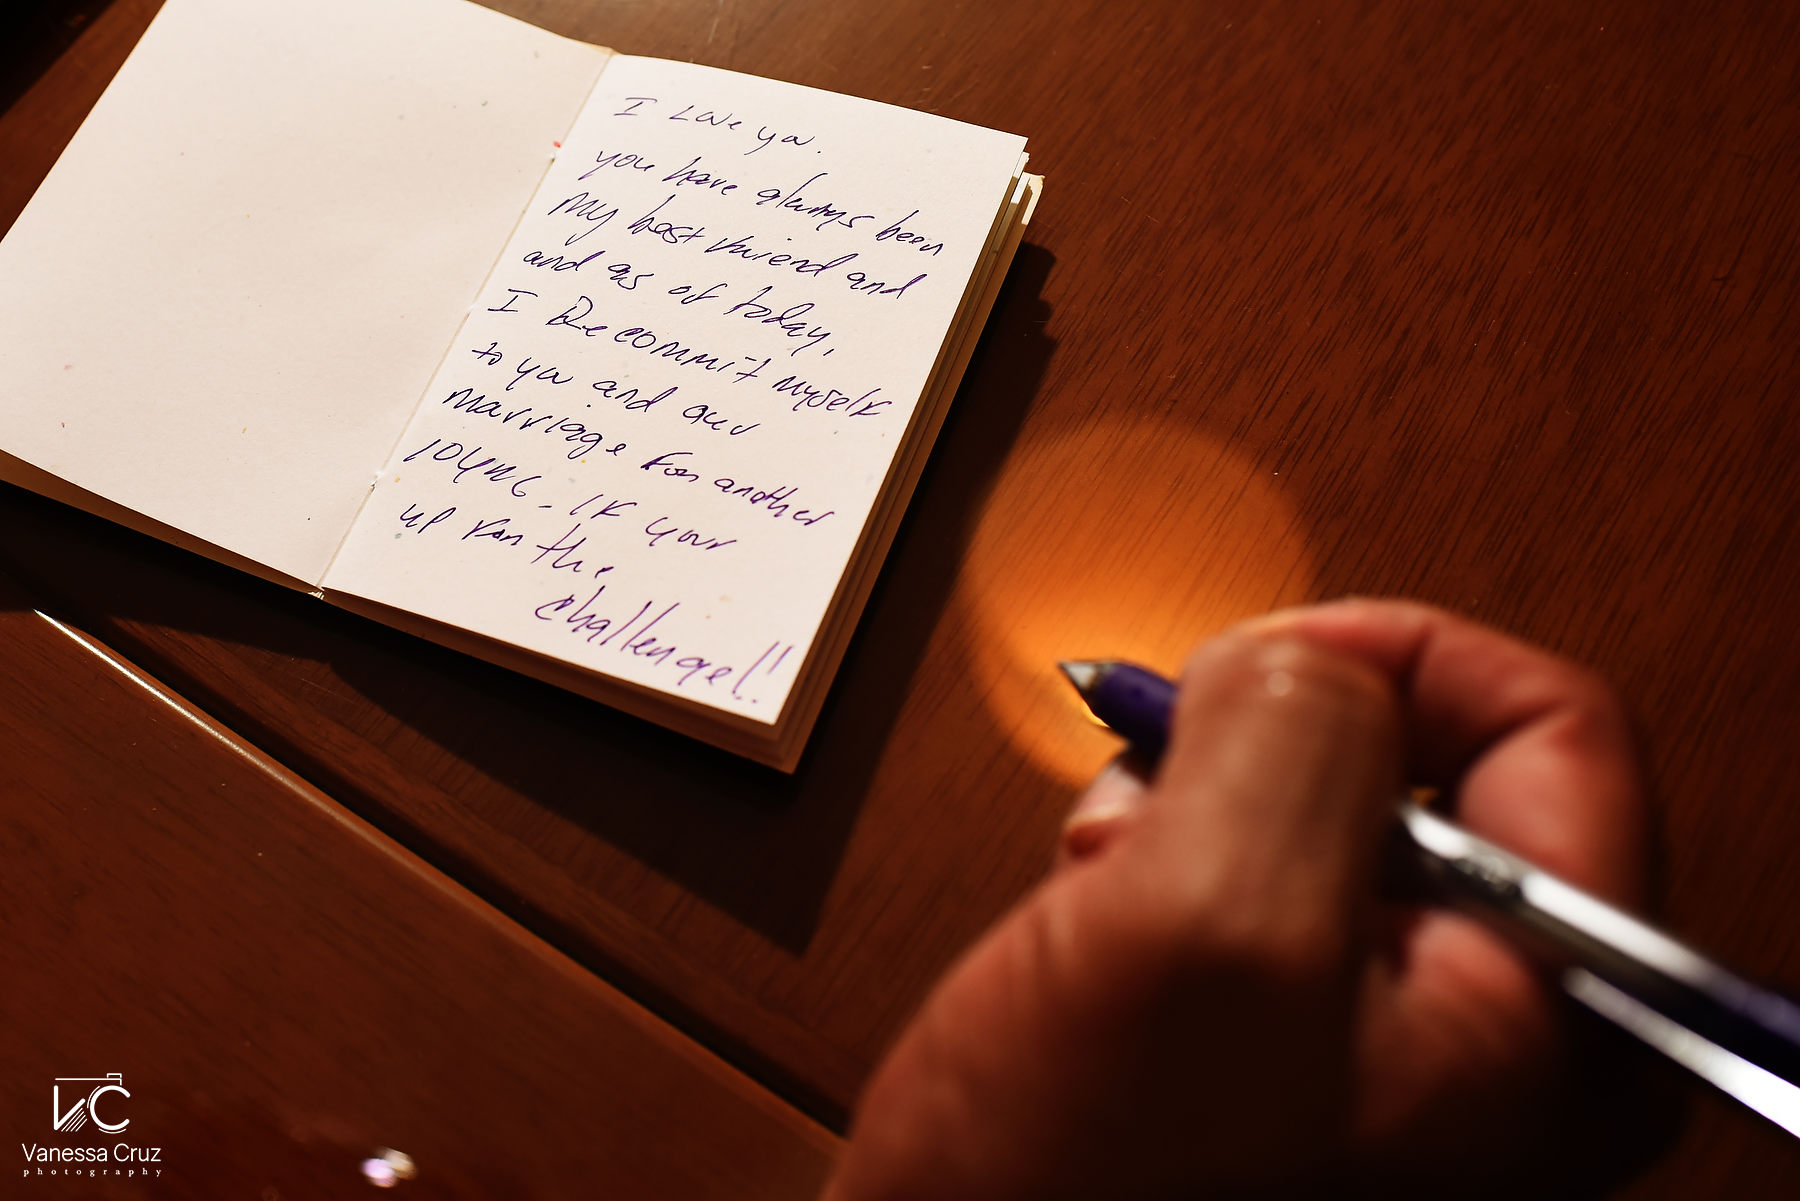 I Love you.
you have always been
My best friend and
and as of today,
I Recommit myself
to you and our
Marriage for another
10yrs. If your
up for the
challenge!!
VC
Vanessa Cruz
photography